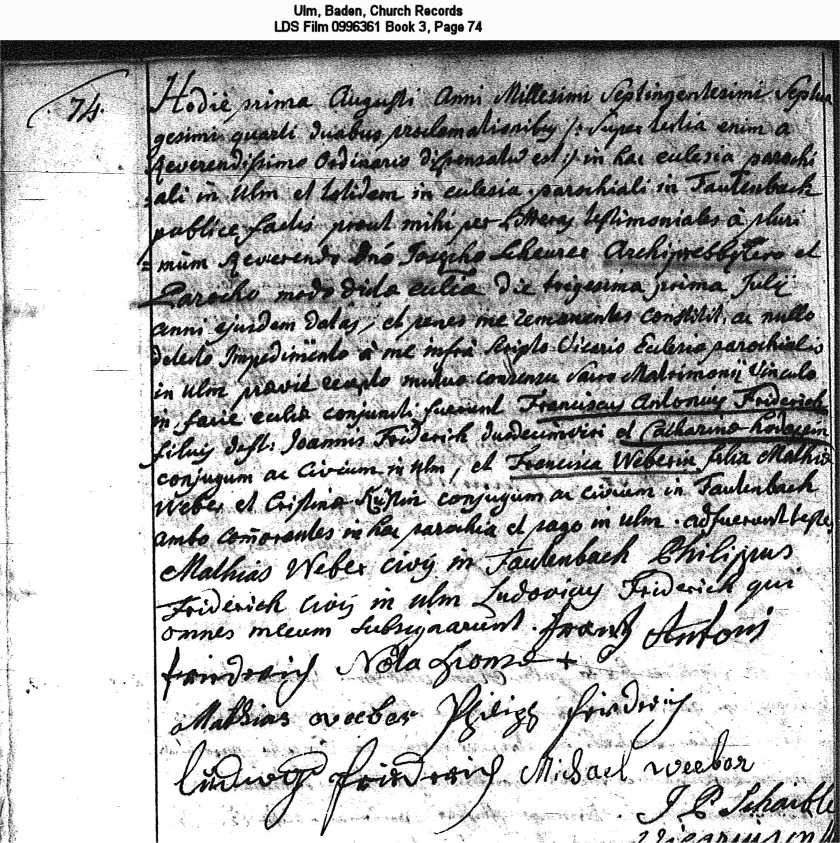 Ulm, Baden, Church Records
LDS Film 0996361 Book 3, Page 74
74.
Hodie prima Augusti Anni Millesimi Septingentesimi Septua
gesimi quarti duabus proclamationibus /: super tertia enim a
Reverendissimo Ordinario dispensatum est :/ in hac eclesia parochi
ali in Ulm et totidem in eclesia parochiali in Fautenbach
publice factis prout mihi per litteras testimoniales à pluri
=mùm Reverendo Dno Josepho Archipresbytero et
Parocho modo dicta die trigesima prima Julÿ
anni ejusdem datas, et penes me remanentes constitit, ac nullo
detecto Impedimento à me infrà scripto Vicario Eclesia parochialis
in Ulm previè mutuo consensu Sacro Matrimonÿ Vinculo
in facie conjuncti fuerunt Franciscus Antonius Friderich
filius Joannis Friderich duodecimviri et Catharina
conjugum ac Civium in Ulm, et Francisca Weberin filia Mathia
Weber et Cristina conjugum ac civium in Fautenbach
ambo comorantes in hac parochia et pago in ulm. adfuerunt testes
Mathias Weber civis in Fautenbach Philippus
Friderich civis in ulm Ludovicus Friderich qui
omnes mecum subsignarunt. Frantz Antoni
friedrich Nota +
Mathias weeber Philipp friedrich
ludwig friedrich Michael weeber
J P Schaible